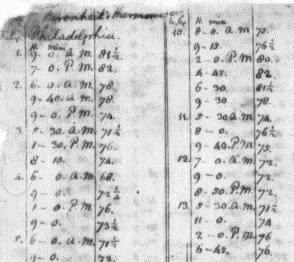 Farenheit's thermometer.
Philadelphia.
July H. min
1. 9-0. A.M. 81½
7-0. P.M. 82.
2. 6-0. A.M. 78.
9-40. A.M. 78.
9-0. P.M. 74.
3. 5-30. A.M. 71½
1-30. P.M. 76.
8-10. 74.
4. 6-0. A.M. 68.
9-0. 72¼
1-0. P.M. 76.
9-0. 73½
5. 6-0. A.M. 71½
9-0. 72.
July H. min
10. 8-0. A.M 75.
9-15. 76½
2-0. P.M. 80.
4-45. 82
6-30. 81½
9-30 78.
11. 5-30 A.M 74.
8-0. 76½
9-40 P.M 75.
12. 7-0. A.M 72.
9-0. 72.
8-30 P.M. 72.
13. 5-30. A.M. 71½
11-0. 74
2-0. P.M 76
6-45. 76.